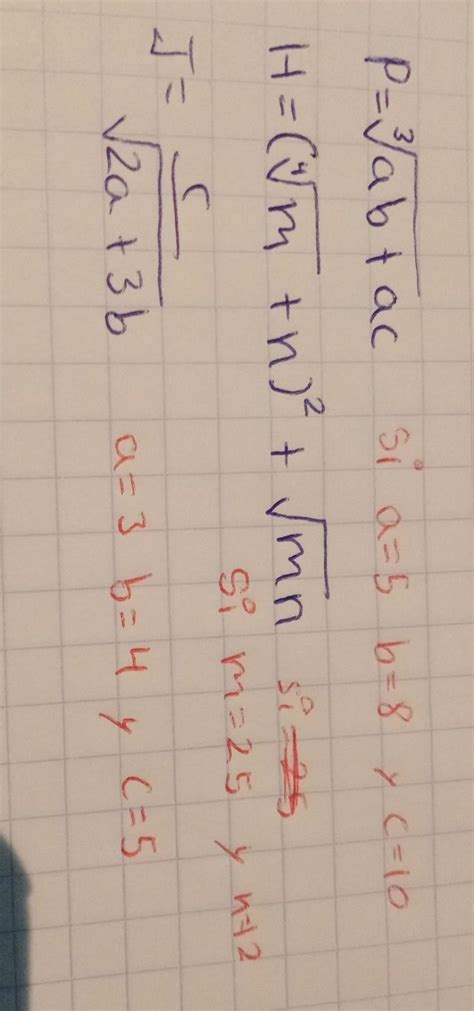 P = ∛ab + ac si a=5 b=8 y c=10
H = (∜m + n)² + √mn si =25
si m=25 y
c
J = —
√2a + 3b a=3 b=4 y c=5